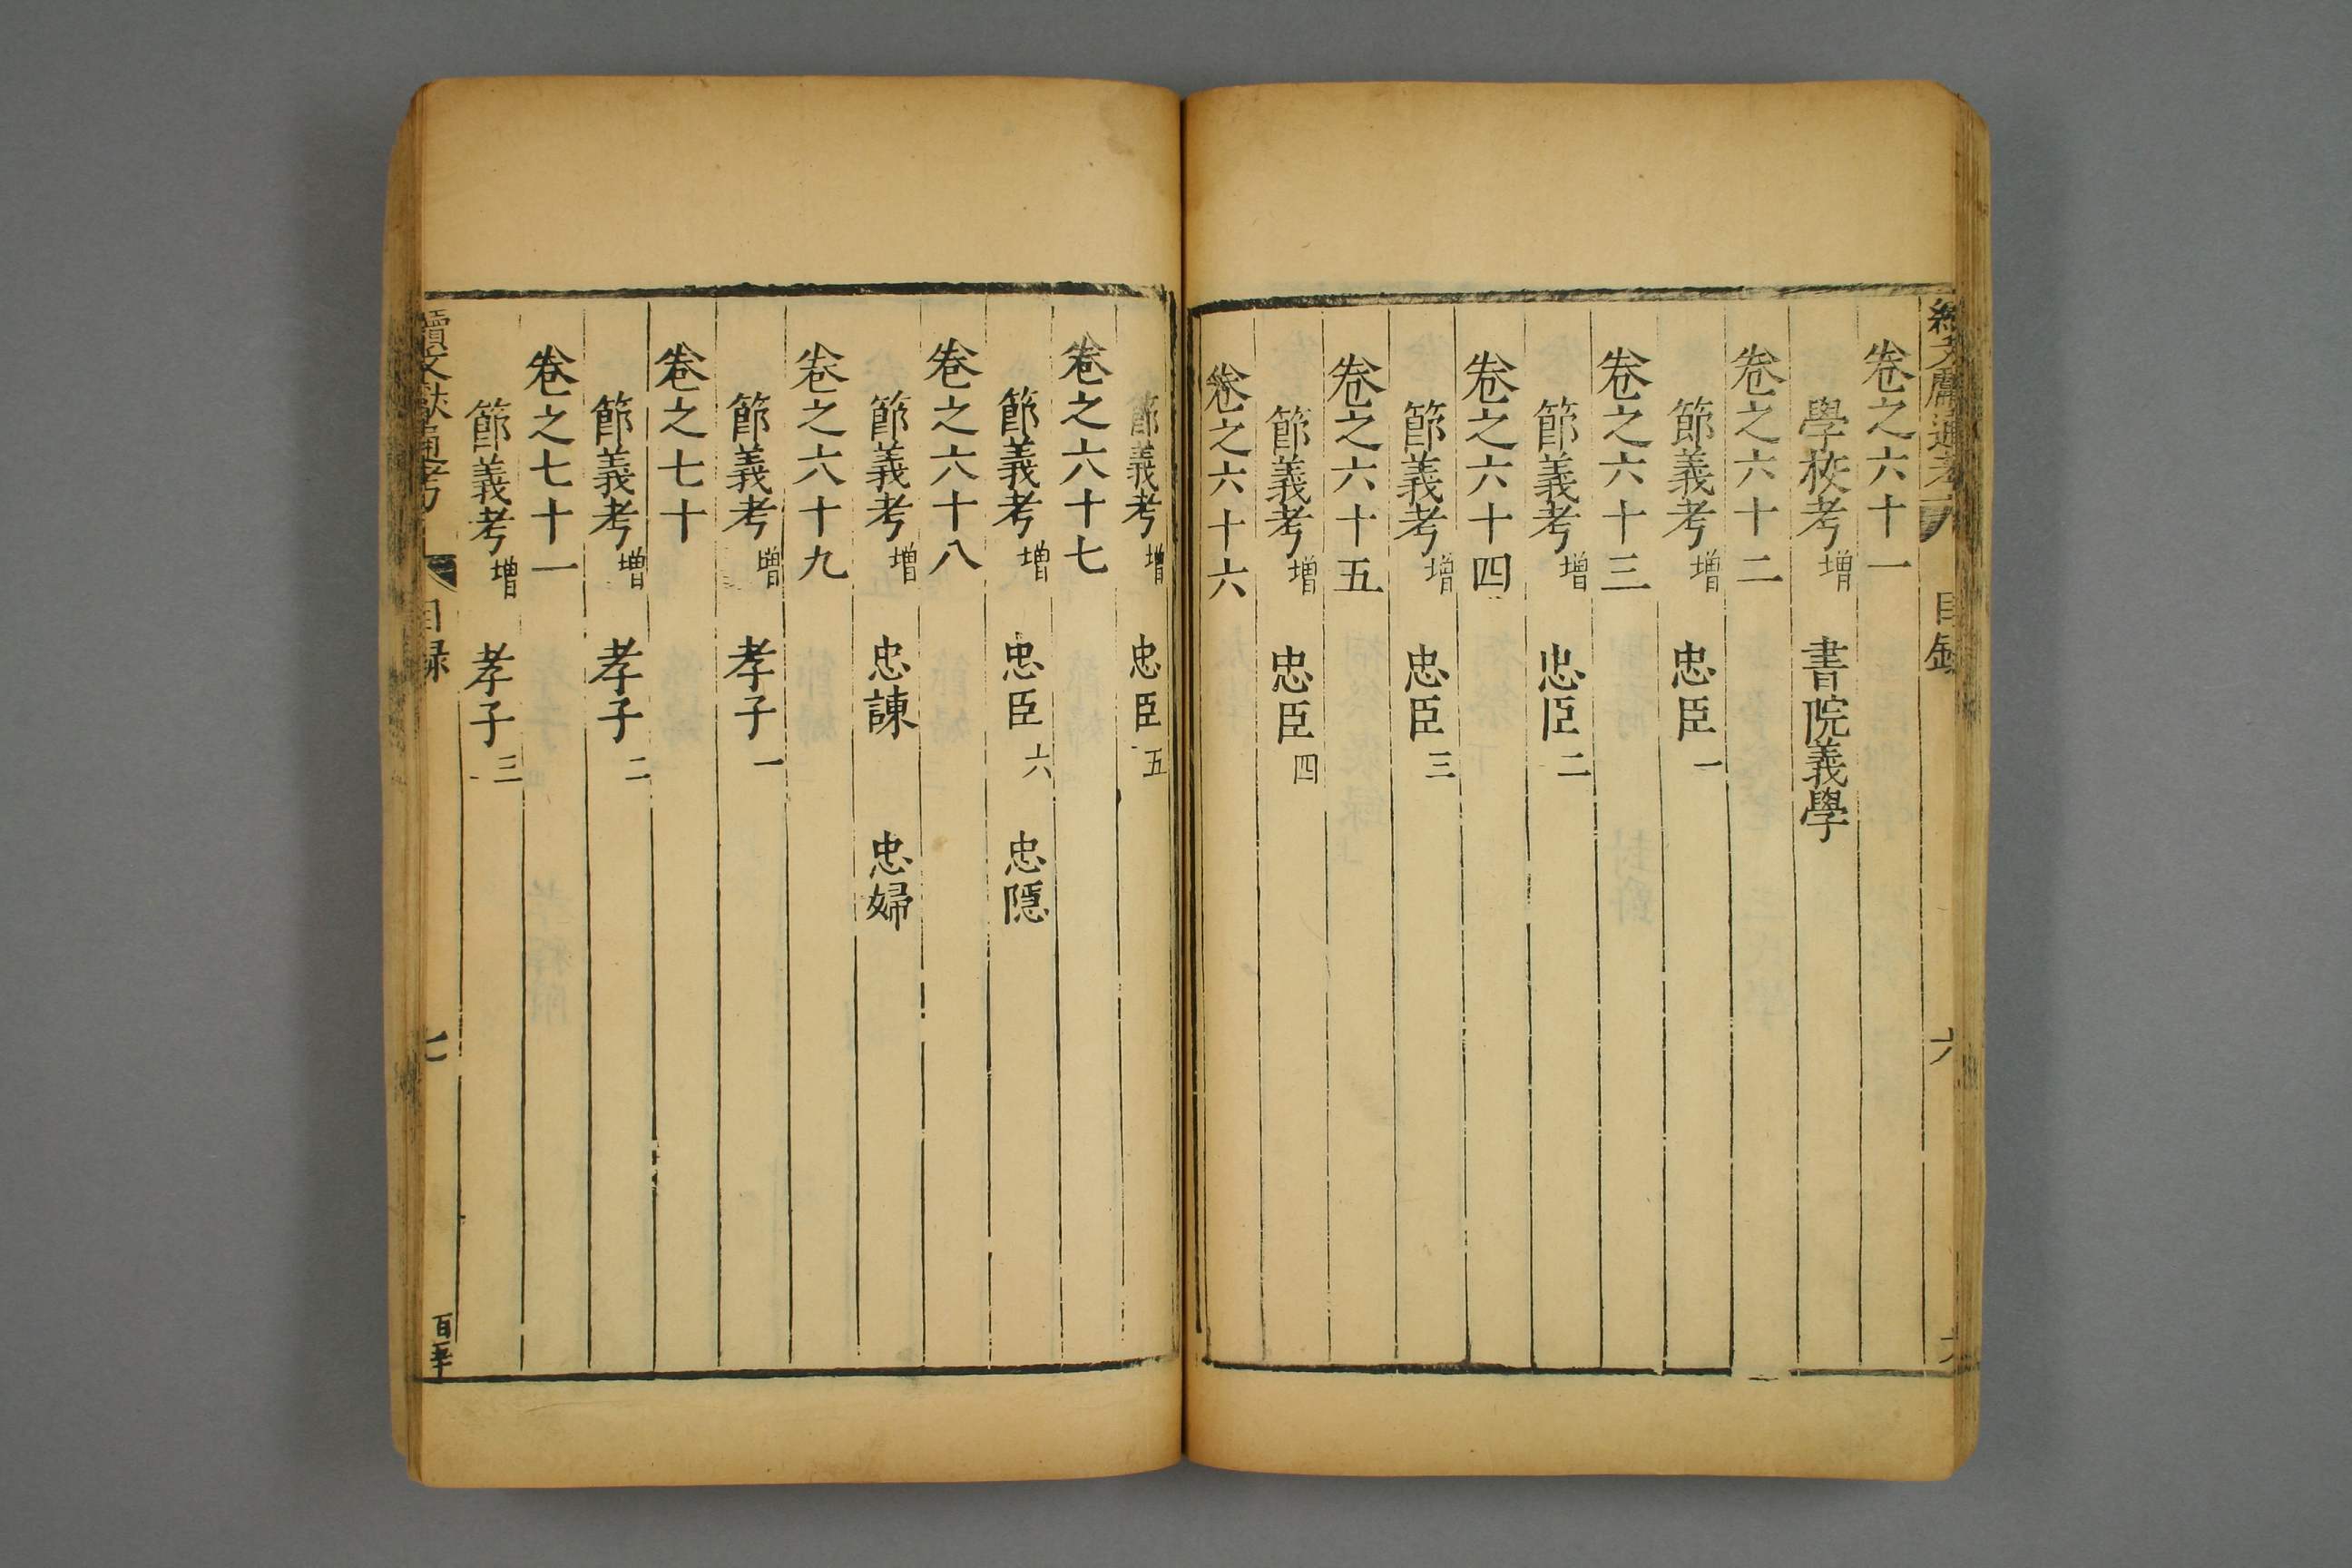 續文獻通考
目錄
六
卷之六十一
學校考增 書院義學
卷之六十二
節義考增 忠臣一
卷之六十三
節義考增 忠臣二
卷之六十四
節義考增 忠臣三
卷之六十五
節義考增 忠臣四
卷之六十六
節義考增 忠臣五
卷之六十七
節義考增 忠臣六 忠隱
卷之六十八
節義考增 忠諫 忠婦
卷之六十九
節義考增 孝子一
卷之七十
節義考增 孝子二
卷之七十一
節義考增 孝子三
續文獻通考
目録
七